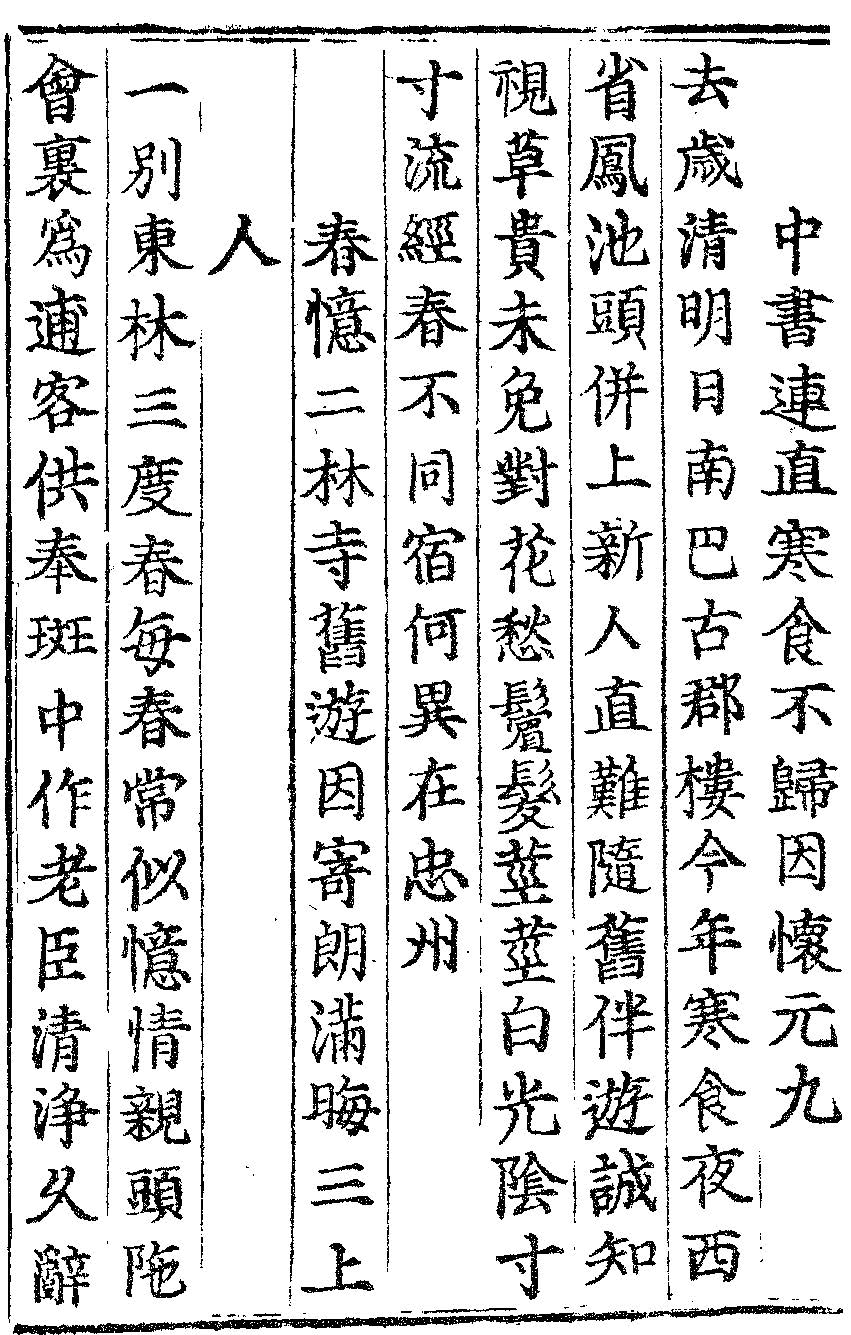 中書連直寒食不歸因懷元九
去歲清明日南巴古郡樓今年寒食夜西
省鳳池頭併上新人直難隨舊伴遊誠知
視草貴未免對花愁鬢髮莖莖白光陰寸
寸流經春不同宿何異在忠州
春憶二林寺舊遊因寄朗滿晦三上
人
一別東林三度春每春常似憶情親頭陁
會裏爲逋客供奉班中作老臣清淨久辭